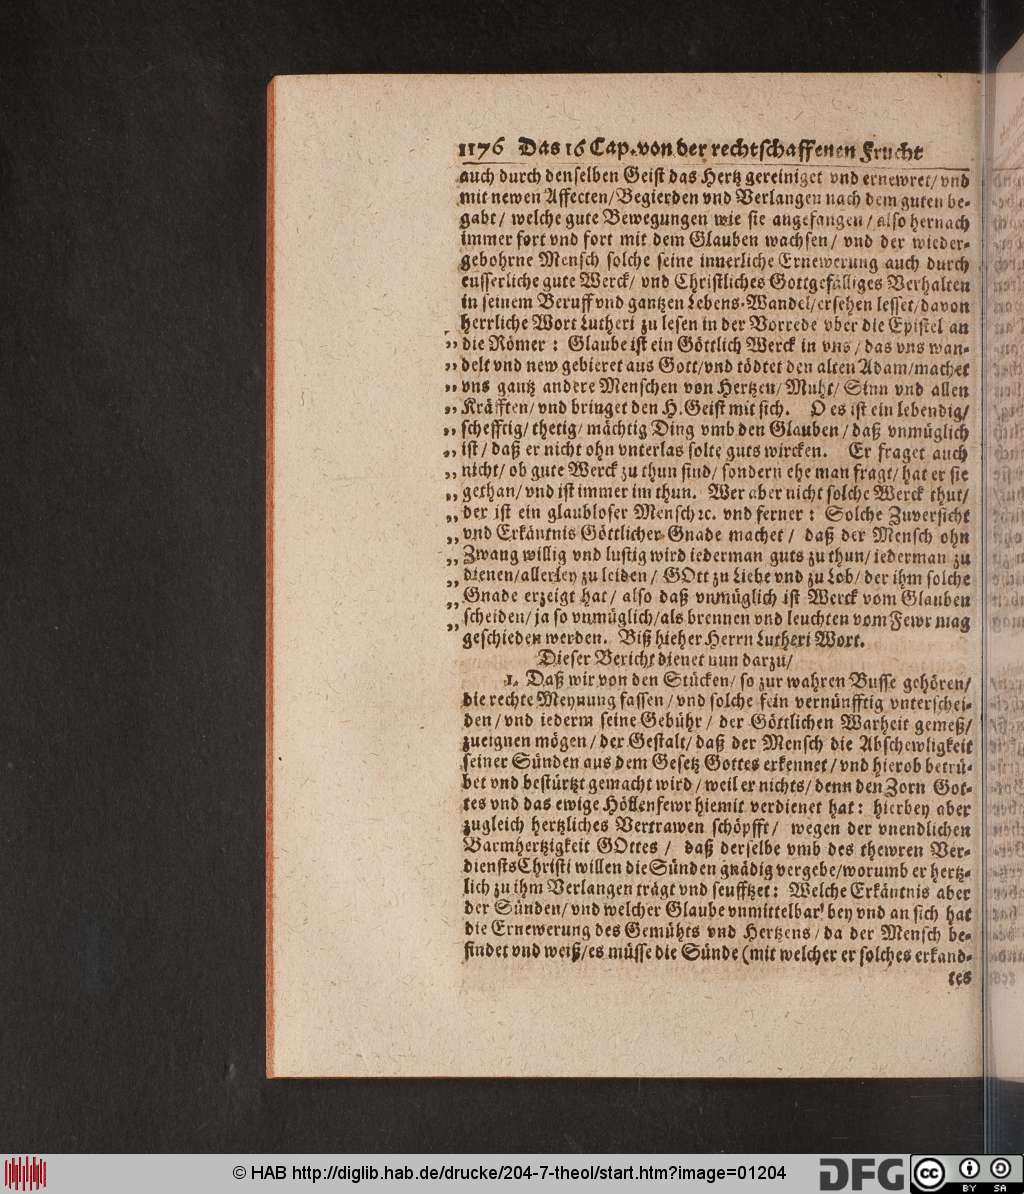 1176 Das 16 Cap. von der rechtschaffenen Frucht
auch durch denselben Geist das Hertz gereiniget vnd ernewret/ vnd
mit newen Affecten/ Begierden vnd Verlangen nach dem guten be-
gabt/ welche gute Bewegungen wie sie angefangen/ also hernach
immer fort vnd fort mit dem Glauben wachsen/ vnd der wieder-
gebohrne Mensch solche seine innerliche Ernewerung auch durch
eusserliche gute Werck/ vnd Christliches Gottgefälliges Verhalten
in seinem Beruff vnd gantzen Lebens-Wandel/ ersehen lesset/ davon
herrliche Wort Lutheri zu lesen in der Vorrede vber die Epistel an
„ die Römer: Glaube ist ein Göttlich Werck in vns/ das vns wan-
„ delt vnd new gebieret aus Gott/ vnd tödtet den alten Adam/ machet
„ vns gantz andere Menschen von Hertzen/ Muht/ Sinn vnd allen
„ Kräfften/ vnd bringet den H. Geist mit sich. O es ist ein lebendig/
„ schefftig/ thetig/ mächtig Ding vmb den Glauben/ daß vnmüglich
„ ist/ daß er nicht ohn vnterlas solte guts wircken. Er fraget auch
„ nicht/ ob gute Werck zu thun sind/ sondern ehe man fragt/ hat er sie
„ gethan/ vnd ist immer im thun. Wer aber nicht solche Werck thut/
„ der ist ein glaubloser Mensch ꝛc. vnd ferner: Solche Zuversicht
„ vnd Erkäntnis Göttlicher Gnade machet/ daß der Mensch ohn
„ Zwang willig vnd lustig wird iederman guts zu thun/ iederman zu
„ dienen/ allerley zu leiden/ GOtt zu Liebe vnd zu Lob/ der ihm solche
„ Gnade erzeigt hat/ also daß vnmüglich ist Werck vom Glauben
„ scheiden/ ja so vnmüglich/ als brennen vnd leuchten vom Fewr mag
geschieden werden. Biß hieher Herrn Lutheri Wort.
Dieser Bericht dienet nun darzu/
1. Daß wir von den Stücken/ so zur wahren Busse gehören/
die rechte Meynung fassen/ vnd solche fein vernünfftig vnterschei-
den/ vnd iederm seine Gebühr/ der Göttlichen Warheit gemeß/
zueignen mögen/ der Gestalt/ daß der Mensch die Abschewligkeit
seiner Sünden aus dem Gesetz Gottes erkennet/ vnd hierob betrü-
bet vnd bestürtzt gemacht wird/ weil er nichts/ denn den Zorn Got-
tes vnd das ewige Höllenfewr hiemit verdienet hat: hierbey aber
zugleich hertzliches Vertrawen schöpfft/ wegen der vnendlichen
Barmhertzigkeit GOttes/ daß derselbe vmb des thewren Ver-
diensts Christi willen die Sünden gnädig vergebe/ worumb er hertz-
lich zu ihm Verlangen trägt vnd seufftzet: Welche Erkäntnis aber
der Sünden/ vnd welcher Glaube vnmittelbar bey vnd an sich hat
die Ernewerung des Gemühts vnd Hertzens/ da der Mensch be-
findet vnd weiß/ es müsse die Sünde (mit welcher er solches erkand-
tes
© HAB http://diglib.hab.de/drucke/204-7-theol/start.htm?image=01204
DFG
cc
BY SA